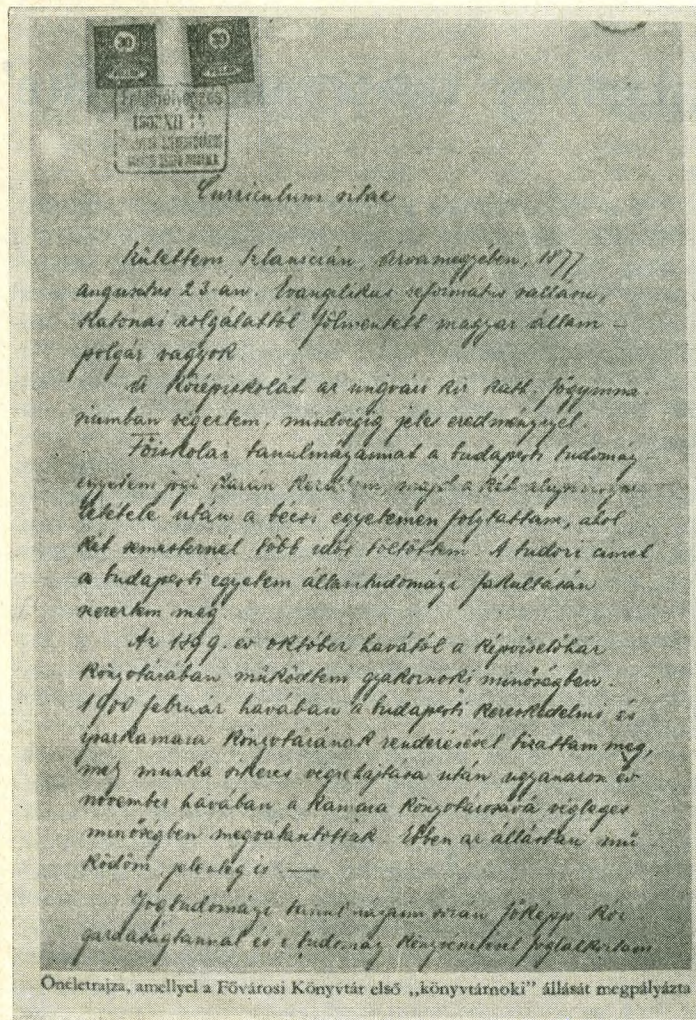 30 30
FILLÉR FILLÉR
Curriculum vitae
Születtem Szlaniczán, Árvamegyében, 1877
augusztus 23-án. Evangelikus református vallásu,
katonai szolgálattól fölmentett magyar állam-
polgár vagyok.
A középiskolát az ungvári kir. kath. főgymna-
siumban végeztem, mindvégig jeles eredménynyel.
Főiskolai tanulmányaimat a budapesti tudomány-
egyetem jogi karán kezdtem, majd a két alapvizsga
letétele után a bécsi egyetemen folytattam, ahol
két semesternél több időt töltöttem. A tudori címet
a budapesti egyetem államtudományi fakultásán
szereztem meg.
Az 1899. év október havától a képviselőház
könyvtárában működtem gyakornoki minőségben.
1900 február havában a budapesti kereskedelmi és
iparkamara könyvtárának rendezésével bizattam meg,
mely munka sikeres végrehajtása után ugyanazon év
november havában a kamara könyvtárosává végleges
minőségben megválasztottak. Ebben az állásban mű-
ködöm jelenleg is. —
Jogtudományi tanulmányaim során főképp köz-
gazdaságtannal és e tudomány foglalkoztam
Önéletrajza, amellyel a Fővárosi Könyvtár első „könyvtárnoki” állását megpályázta